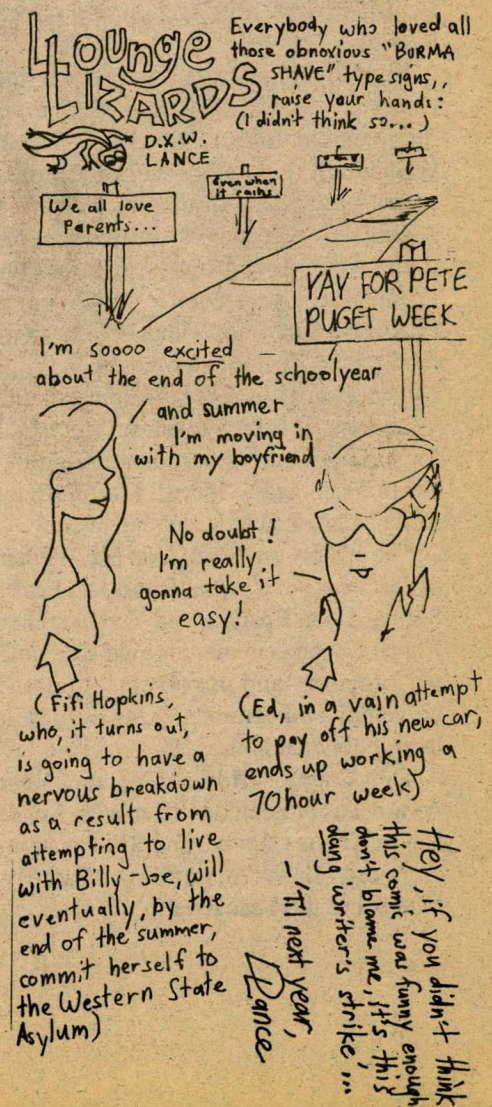 Lounge
LIZARDS
D.X.W.
LANCE
Everybody who loved all
those obnoxious "BURMA
SHAVE" type signs,,
raise your hands:
(I didn't think so...)
We all love
Parents...
Even when
it rains
YAY FOR PETE
PUGET WEEK
I'm soooo excited
about the end of the schoolyear
and summer
I'm moving in
with my boyfriend
No doubt!
I'm really
gonna take it
easy!
(Fifi Hopkins,
who, it turns out,
is going to have a
nervous breakdown
as a result from
attempting to live
with Billy-Joe, will
eventually, by the
end of the summer,
commit herself to
the Western State
Asylum)
(Ed, in a vain attempt
to pay off his new car,
ends up working a
70 hour week)
Hey, if you didn't think
this comic was funny enough
don't blame me, it's this
dang writer's strike...
-'Til next year,
Lance